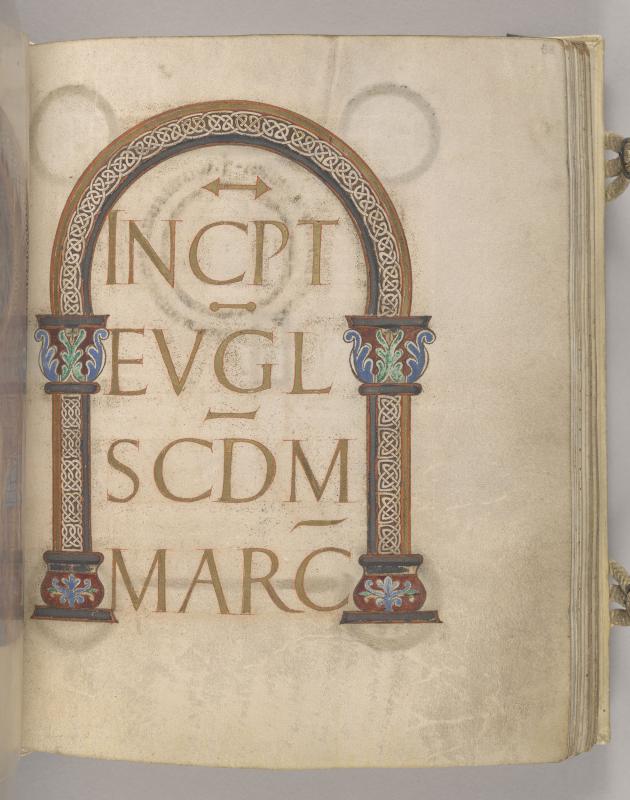 INCPT
EVGL
SCDM
MARC